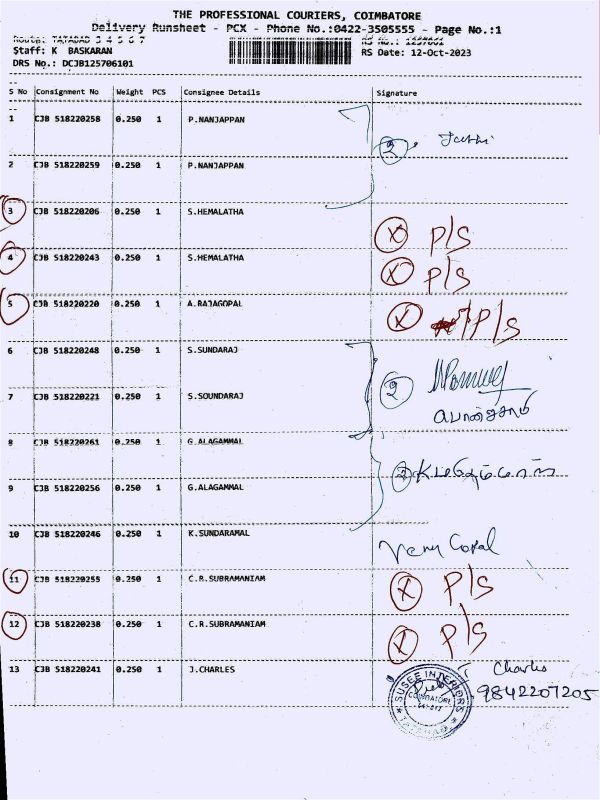 THE PROFESSIONAL COURIERS, COIMBATORE
Delivery Runsheet - PCX - Phone No.:0422-3505555 - Page No.:1
Route: TATABAD 3 4 5 6 7
Staff: K BASKARAN
RS Date: 12-Oct-2023
DRS No.: DCJB125706101
S No Consignment No Weight PCS Consignee Details Signature
1 CJB 518220258 0.250 1 P.NANJAPPAN
2
2 CJB 518220259 0.250 1 P.NANJAPPAN
3 CJB 518220206 0.250 1 S.HEMALATHA
X P/S
4 CJB 518220243 0.250 1 S.HEMALATHA
X P/S
5 CJB 518220220 0.250 1 A.RAJAGOPAL
X P/S
6 CJB 518220248 0.250 1 S.SUNDARAJ
2
7 CJB 518220221 0.250 1 S.SOUNDARAJ
8 CJB 518220261 0.250 1 G.ALAGAMMAL
2
9 CJB 518220256 0.250 1 G.ALAGAMMAL
10 CJB 518220246 0.250 1 K.SUNDARAMAL
Venu Gopal
11 CJB 518220255 0.250 1 C.R.SUBRAMANIAM
X P/S
12 CJB 518220238 0.250 1 C.R.SUBRAMANIAM
X P/S
13 CJB 518220241 0.250 1 J.CHARLES
Charles
9842207205
SUSEE INTERIORS
COIMBATORE
TATABAD